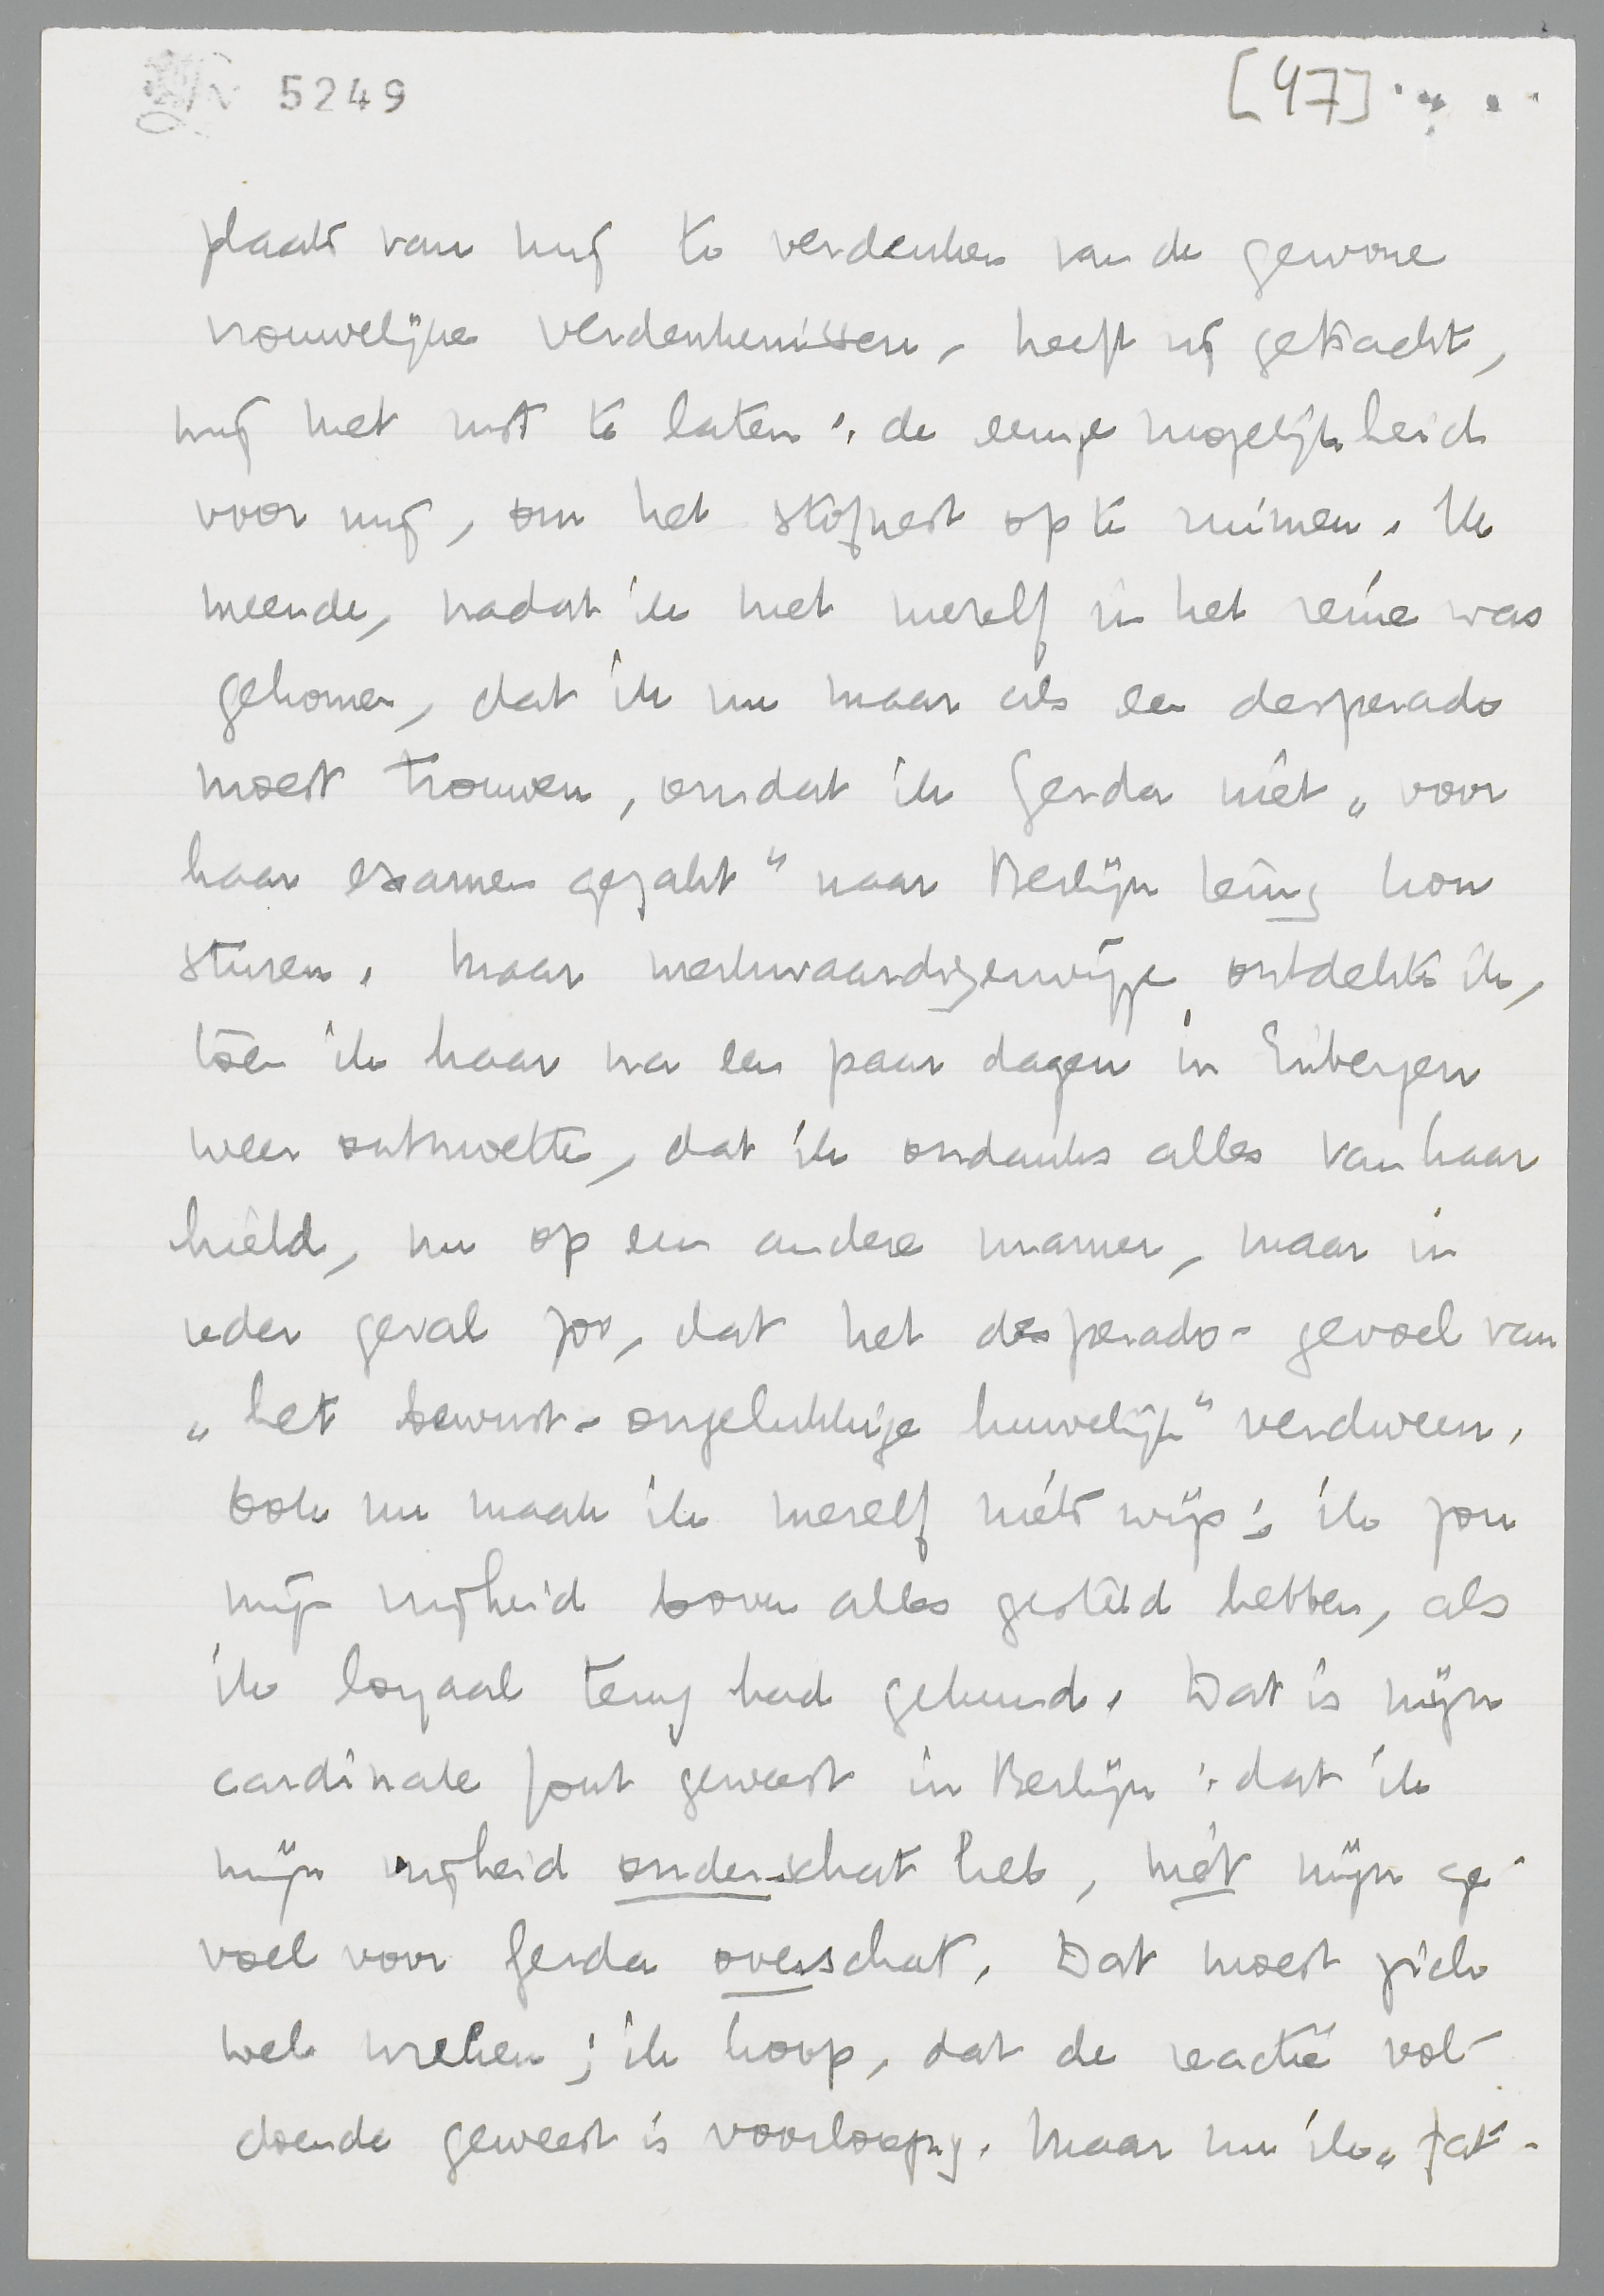 5249
[47]
plaats van mij te verdenken van de gewone
vrouwelijke verdenkenissen, heeft zij getracht,
mij met rust te laten: de eenige mogelijkheid
voor mij, om het stofnest op te ruimen. Ik
meende, nadat ik met mezelf in het reine was
gekomen, dat ik nu maar als een desperado
moest trouwen, omdat ik Gerda niet „voor
haar examen gezakt” naar Berlijn terug kon
sturen. Maar merkwaardigerwijze ontdekte ik,
toen ik haar na een paar dagen in Eibergen
weer ontmoette, dat ik ondanks alles van haar
hield, nu op een andere manier, maar in
ieder geval zoo, dat het desperado-gevoel van
„het bewust-ongelukkige huwelijk” verdween.
Ook nu maak ik mezelf niets wijs; ik zou
mijn vrijheid boven alles gesteld hebben, als
ik loyaal terug had gekund. Dat is mijn
cardinale fout geweest in Berlijn: dat ik
mijn vrijheid onderschat heb, niet mijn ge-
voel voor Gerda overschat. Dat moest zich
wel wreken; ik hoop, dat de reactie vol-
doende geweest is voorloopig. Maar nu ik „fat-